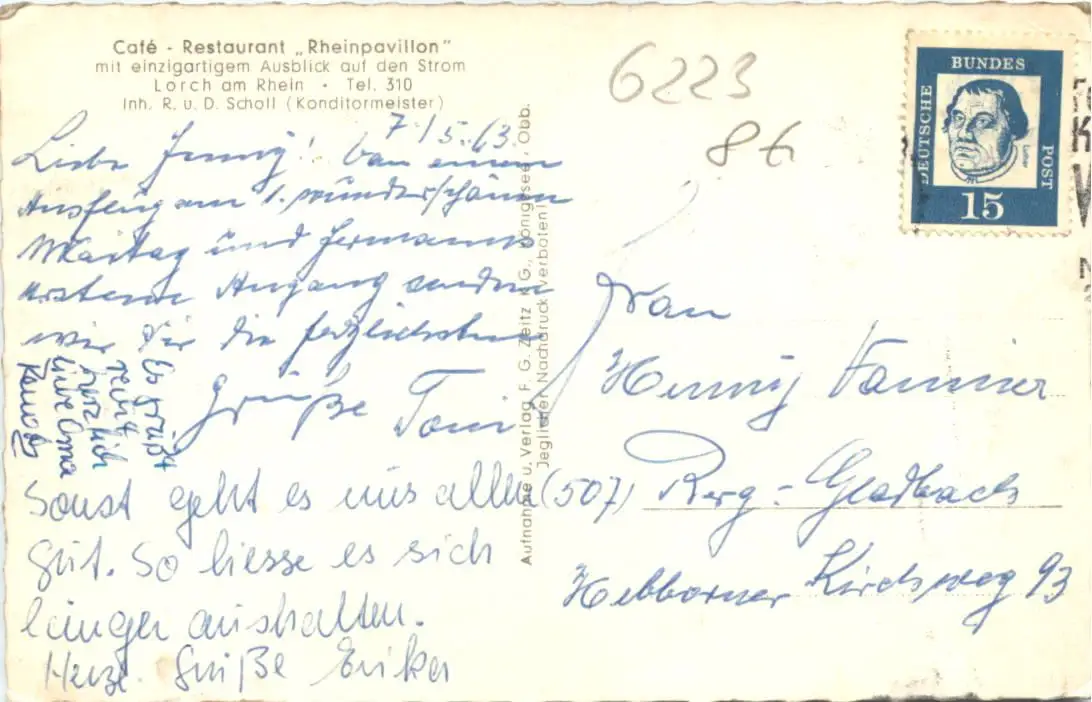 Café - Restaurant „Rheinpavillon"
mit einzigartigem Ausblick auf den Strom
Lorch am Rhein · Tel. 310
Inh. R. u. D. Scholl (Konditormeister)
7./5.63.
Liebe Henny! Von einem
Ausflug am 1. wunderschönen
Maitag und Hermanns
ersten Ausgang senden
wir Dir die herzlichsten
Grüße Toni
Es grüßt
recht
herzlich
liebe Oma
Sonst geht es uns allen
gut. So liesse es sich
länger aushalten.
Herzl. Grüße Erika
Aufnahme u. Verlag F. G. Zeitz K.G., Königsee / Obb.
Jeglicher Nachdruck verboten!
6223
86
DEUTSCHE
BUNDES
POST
Luther
15
Frau
Henny
(507) Berg-Gladbach
Hebborner Kirchweg 93